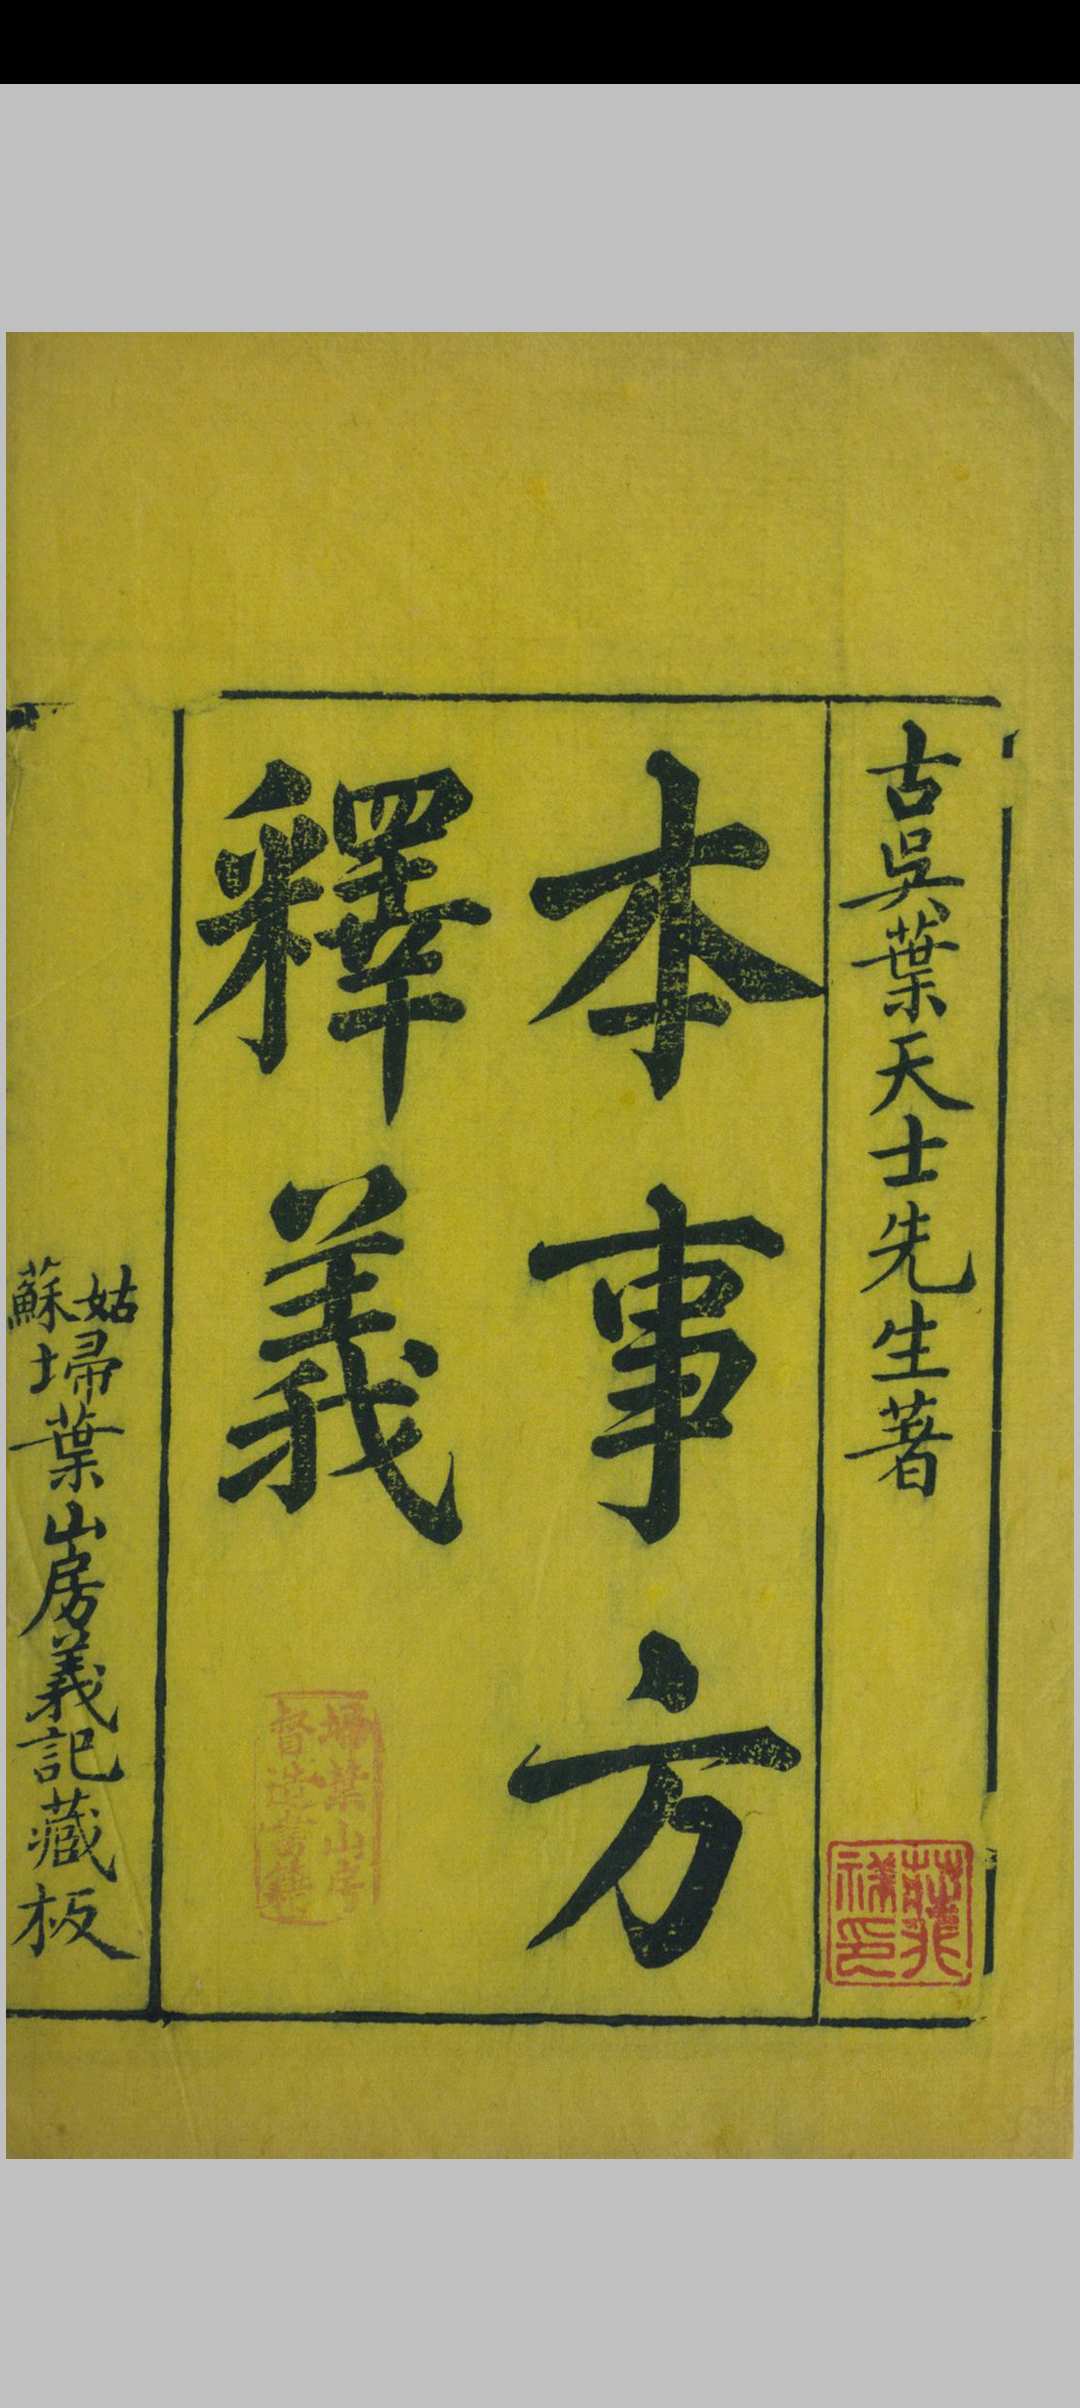 古吳葉天士先生著
本事方
釋義
姑蘇埽葉山房義記藏板
埽葉山房
督造書籍